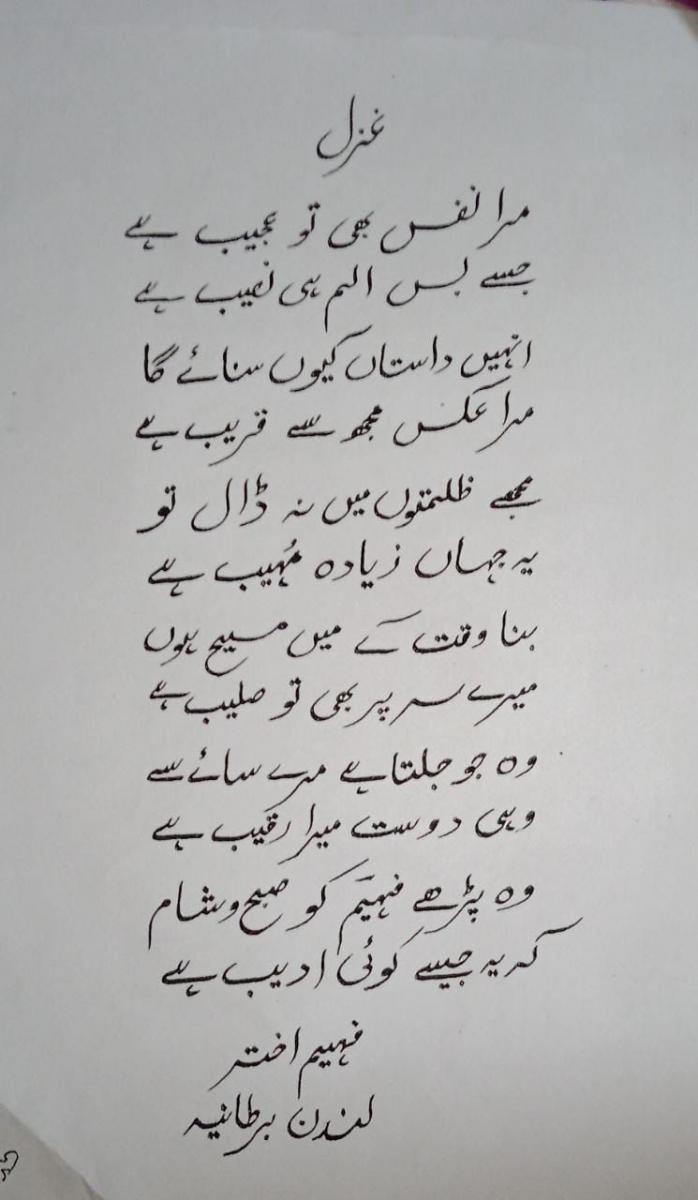 غزل
مرا نفس بھی تو عجیب ہے
جسے بس الم ہی نصیب ہے
انہیں داستاں کیوں سنائے گا
مرا عکس مجھ سے قریب ہے
مجھے ظلمتوں میں نہ ڈال تو
یہ جہاں زیادہ مُہیب ہے
بنا وقت کے میں مسیح ہوں
میرے سر پر بھی تو صلیب ہے
وہ جو جلتا ہے مرے سائے سے
وہی دوست میرا رقیب ہے
وہ پڑھے فہیم کو صبح و شام
کہ یہ جیسے کوئی ادیب ہے
فہیم اختر
لندن برطانیہ